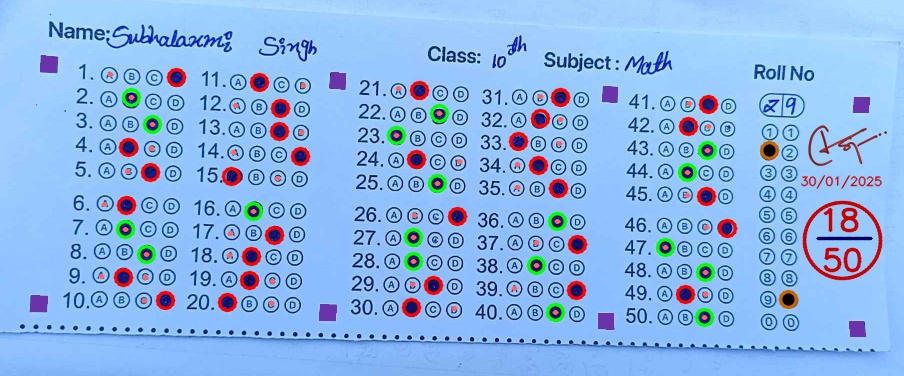 Name: Subhalaxmi Singh
Class: 10th Subject: Math
Roll No
29
1. A B C
2. A C D
3. A B D
4. A C D
5. A B D
6. A C D
7. A C D
8. A B D
9. A C D
10. A B C
11. A C D
12. A B D
13. A B D
14. A B C
15. B C D
16. A C D
17. A B D
18. A C D
19. A C D
20. B C D
21. A C D
22. A B D
23. B C D
24. A C D
25. A B D
26. A B C
27. A C D
28. A C D
29. A B D
30. A C D
31. A B D
32. A C D
33. B C D
34. A C D
35. A B D
36. A B D
37. A B C
38. A C D
39. A B C
40. A B D
41. A B D
42. A C D
43. A B D
44. A C D
45. A B D
46. A B C
47. B C D
48. A B D
49. A C D
50. A B D
1 1
2
3 3
4 4
5 5
6 6
7 7
8 8
9
0 0
30/01/2025
18
50